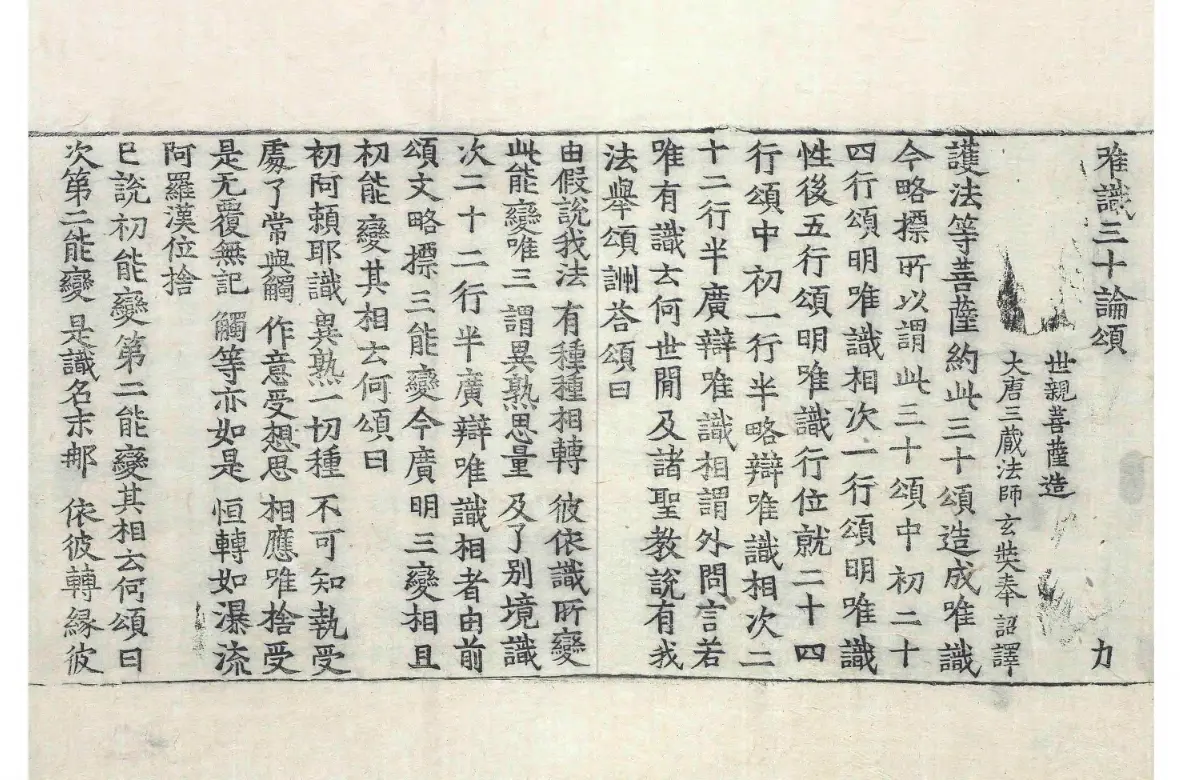 唯識三十論頌 力
世親菩薩造
大唐三藏法師玄奘奉 詔譯
護法等菩薩約此三十頌造成唯識
今略標所以謂此三十頌中初二十
四行頌明唯識相次一行頌明唯識
性後五行頌明唯識行位就二十四
行頌中初一行半略辯唯識相次二
十二行半廣辯唯識相謂外問言若
唯有識云何世閒及諸聖教說有我
法舉頌詶荅頌曰
由假說我法 有種種相轉 彼依識所變
此能變唯三 謂異熟思量 及了别境識
次二十二行半廣辯唯識相者由前
頌文略標三能變今廣明三變相且
初能變其相云何頌曰
初阿賴耶識 異熟一切種 不可知執受
處了常與觸 作意受想思 相應唯捨受
是无覆無記 觸等亦如是 恒轉如瀑流
阿羅漢位捨
已說初能變第二能變其相云何頌曰
次第二能變 是識名末那 依彼轉縁彼